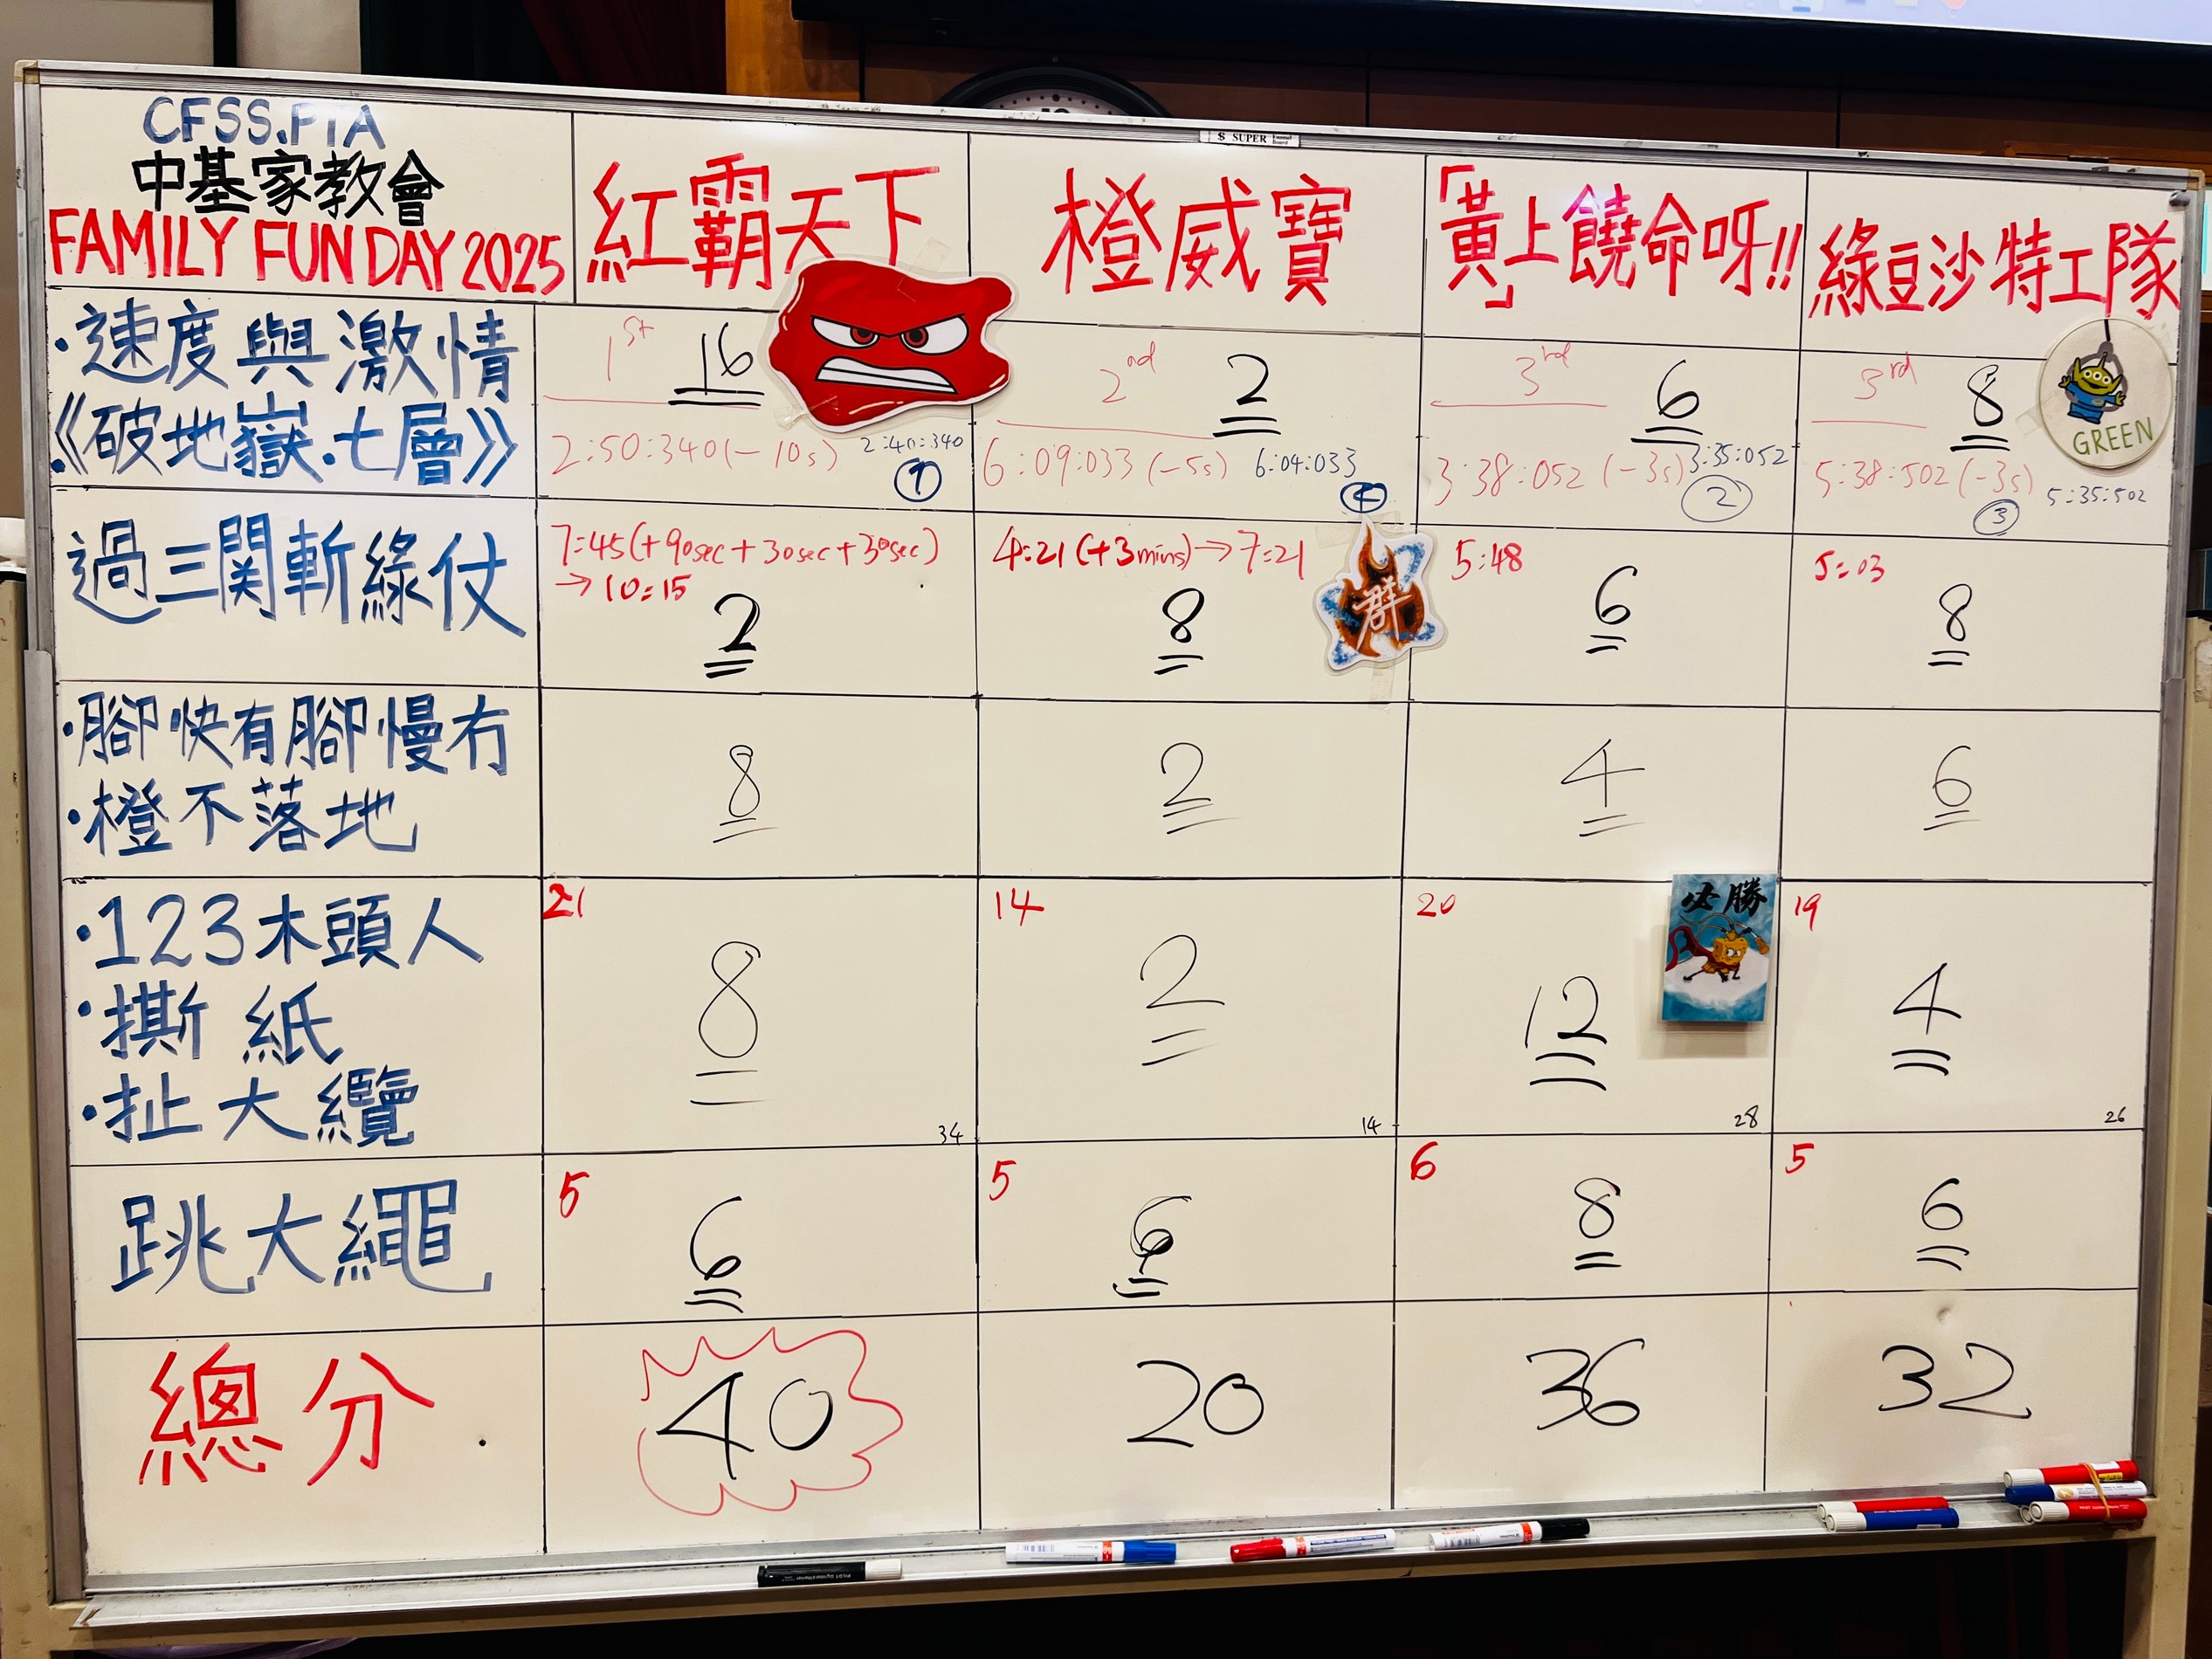 $ SUPER Enamel Board
CFSS.PTA
中基家教會
FAMILY FUN DAY 2025
紅霸天下
橙威寶
「黃」上饒命呀!!
綠豆沙特工隊
·速度與激情
·《破地嶽.七層》
1st
16
2:50:340(-10s)
2:40:340
①
2nd
2
6:09:033(-5s)
6:04:033
④
3rd
6
3:38:052(-3s)
3:35:052
②
3rd
8
5:38:502(-3s)
5:35:502
③
GREEN
過三関斬綠仗
7:45(+90sec+30sec+30sec)
→10:15
2
4:21(+3mins)→7:21
8
群
5:48
6
5:03
8
·腳快有腳慢冇
·橙不落地
8
2
4
6
·123木頭人
·撕紙
·扯大纜
21
8
34
14
2
14
20
12
28
必勝
19
4
26
跳大繩
5
6
5
6
6
8
5
6
總分
40
20
36
32